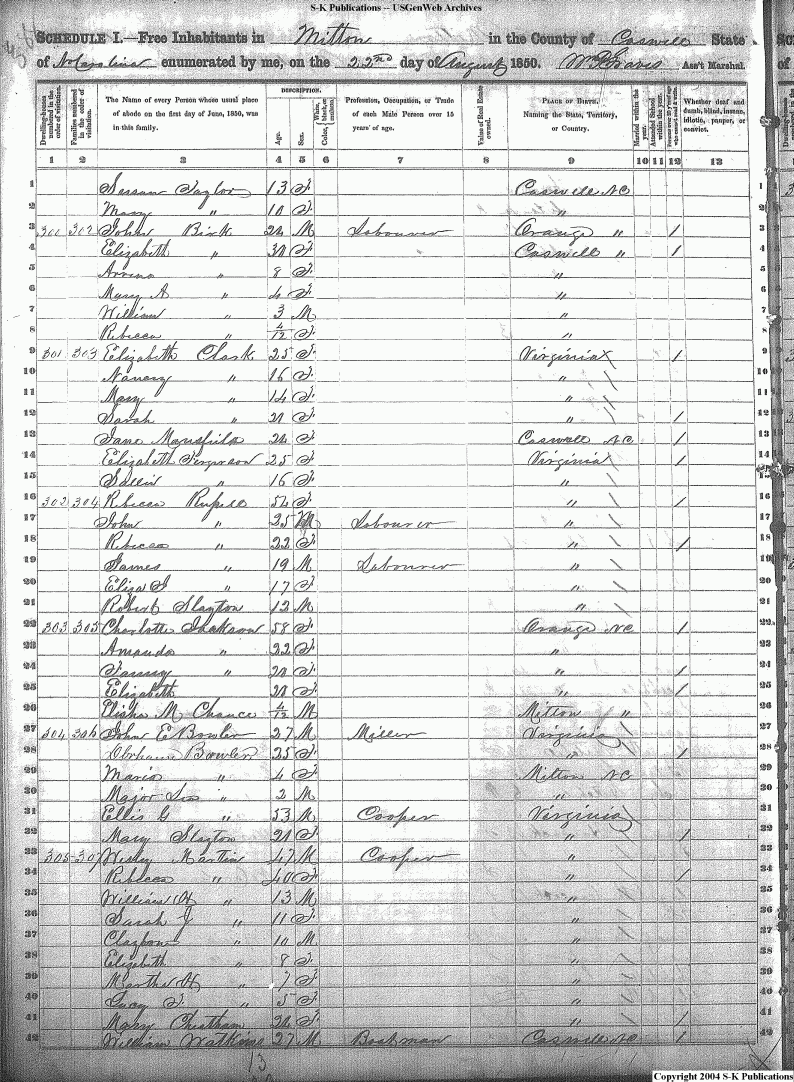 S-K Publications -- USGenWeb Archives
SCHEDULE I.—Free Inhabitants in Milton in the County of Caswell State
of N Carolina enumerated by me, on the 22nd day of August 1850. Ass't Marshal.
DESCRIPTION.
Dwelling-houses numbered in the order of visitation.
Families numbered in the order of visitation.
The Name of every Person whose usual place of abode on the first day of June, 1850, was in this family.
Age.
Sex.
White, black, or mulatto.
Color,
Profession, Occupation, or Trade of each Male Person over 15 years of age.
Value of Real Estate owned.
PLACE OF BIRTH. Naming the State, Territory, or Country.
Married within the year.
Attended School within the year.
Whether deaf and dumb, blind, insane, idiotic, pauper, or convict.
1 2 3 4 5 6 7 8 9 10 11 12 13
1 Taylor 13 F Caswell NC 1
2 Mary " 10 F " 2
3 300 302 John 24 M Labourer Orange " / 3
4 Elizabeth " 30 F Caswell " / 4
5 8 F " 5
6 Mary A " 4 F " 6
7 William " 3 M " 7
8 Rebecca " 4/12 F " 8
9 301 303 Elizabeth Clark 25 F Virginia / 9
10 Nancy " 16 F " 10
11 Mary " 14 F " 11
12 Sarah " 20 F " / 12
13 Jane Mansfield 24 F Caswell NC / 13
14 Elizabeth Ferguson 25 F Virginia / 14
15 " 16 F " 15
16 302 304 Rebecca 54 F " / 16
17 John " 25 M Labourer " 17
18 Rebecca " 22 F " / 18
19 James " 19 M Labourer " 19
20 Eliza " 17 F " 20
21 Robert Slayton 12 M " 21
22 303 305 Charlotte Jackson 58 F Orange NC / 22
23 Amanda " 22 F " 23
24 " 20 F " / 24
25 Elizabeth 20 F " / 25
26 Elisha M Chance 4/12 M Milton " 26
27 304 306 John E Bowler 27 M Miller Virginia 27
28 Bowler 25 F " / 28
29 " 4 F Milton NC 29
30 Major " 2 M " 30
31 Ellis G " 53 M Cooper Virginia 31
32 Mary Slayton 20 F " / 32
33 305 307 Wesley Martin 47 M Cooper " 33
34 Rebecca " 40 F " / 34
35 William H " 13 M " 35
36 Sarah J " 11 F " 36
37 " 10 M " 37
38 Elizabeth " 8 F " 38
39 Martha H " 7 F " 39
40 Lucy F. " 5 F " 40
41 Mary Cheatham 24 F " / 41
42 William Watkins 27 M Boatman Caswell NC / 42
13
Copyright 2004 S-K Publications